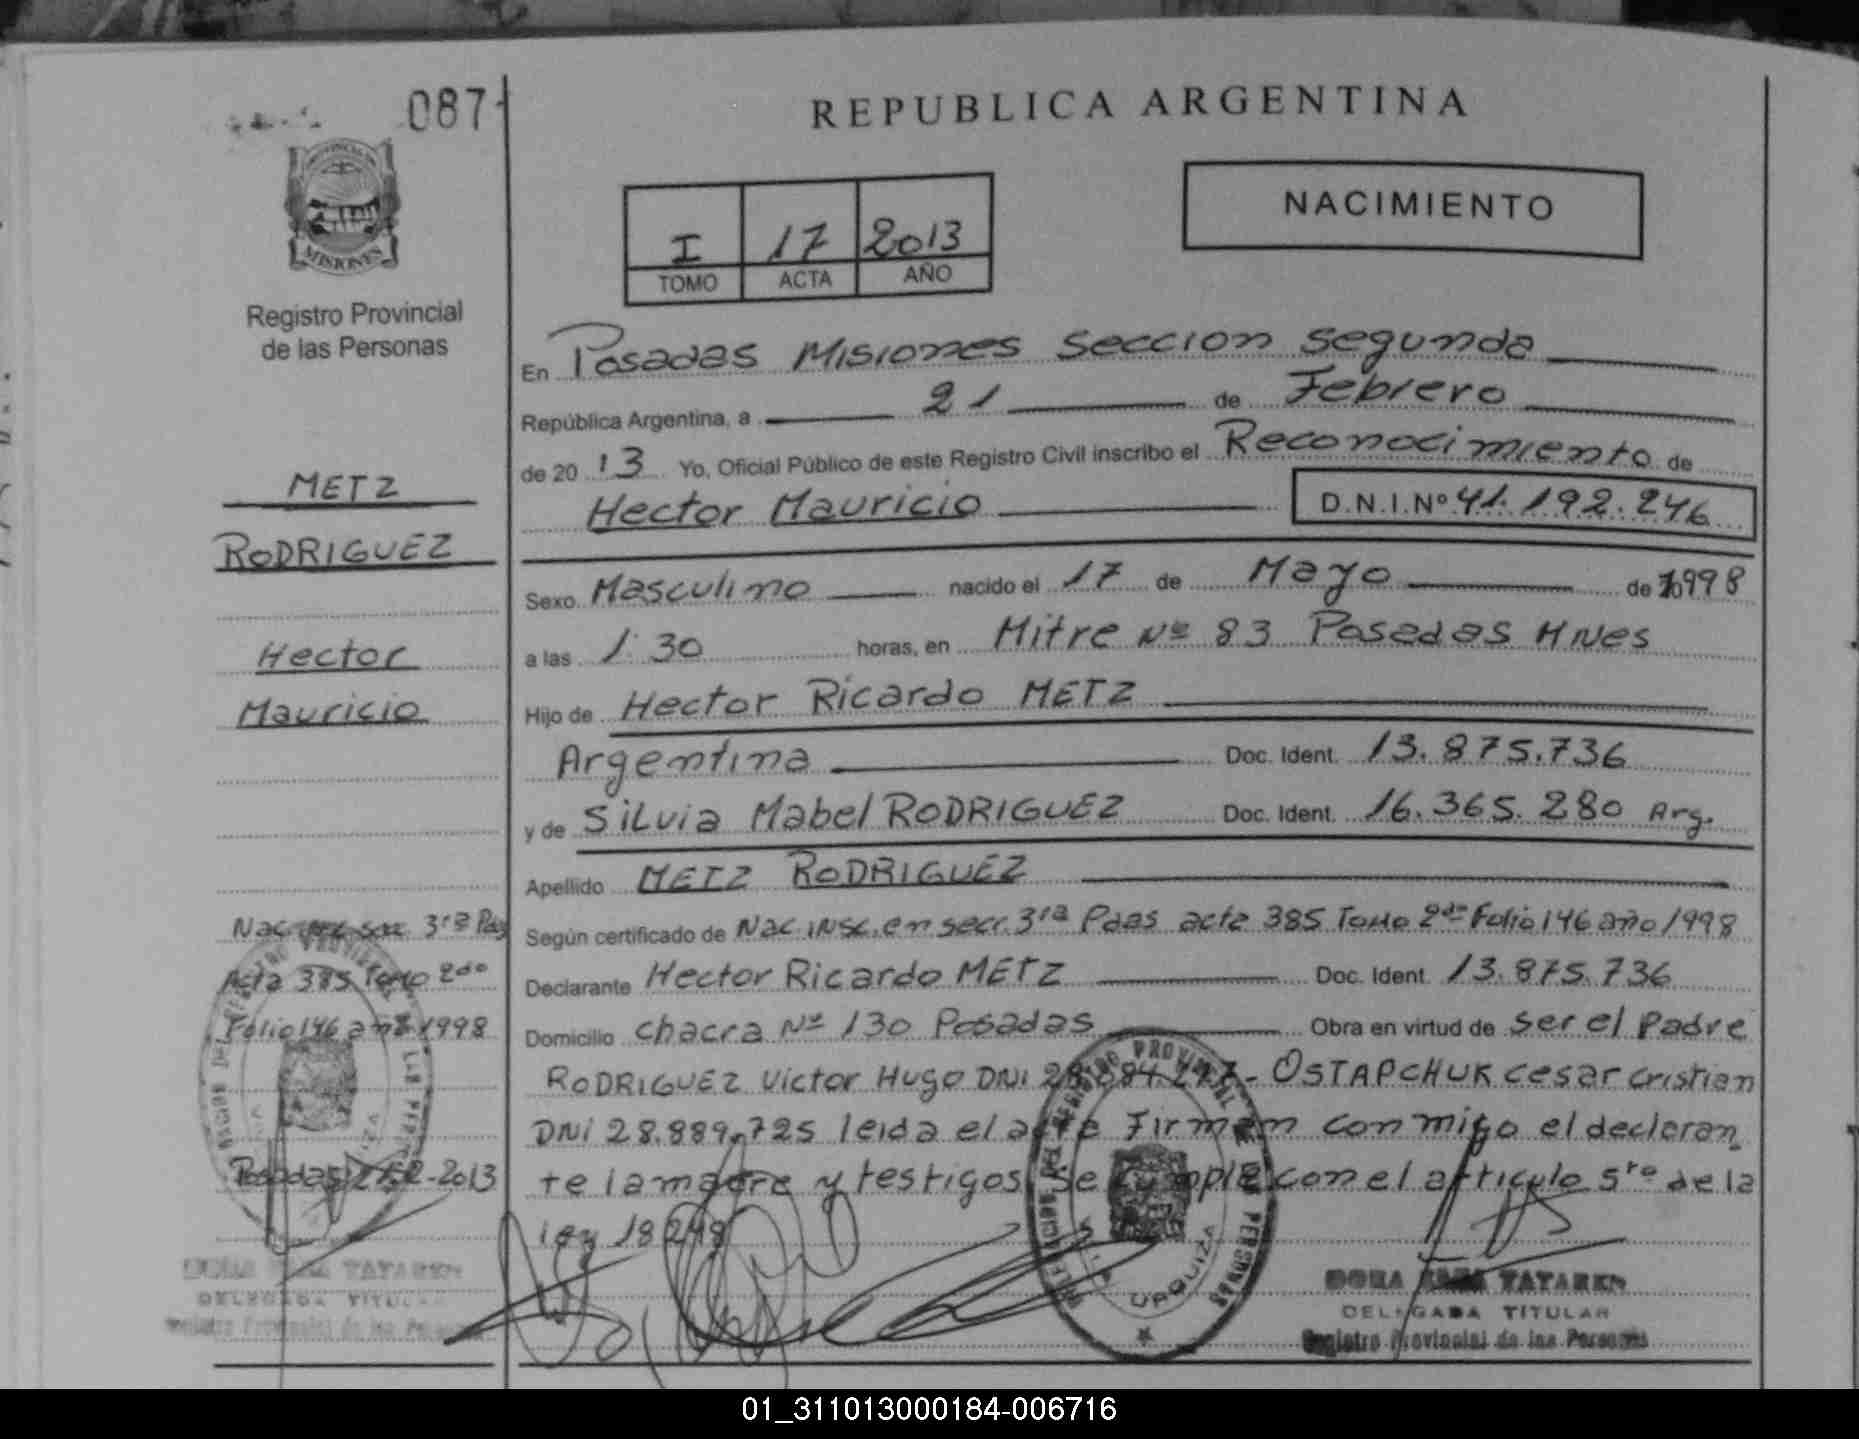 087
REPUBLICA ARGENTINA
NACIMIENTO
I 17 2013
TOMO ACTA AÑO
MISIONES
Registro Provincial
de las Personas
METZ
RODRIGUEZ
Hector
Mauricio
Nac. insc. secc 3ra Pdas
Acta 385 Tomo 2do
Folio 146 año 1998
Posadas 21-2-2013
DELEGADA TITULAR
Registro Provincial de las Personas
En Posadas Misiones Seccion Segunda
República Argentina, a 21 de Febrero
de 2013 Yo, Oficial Público de este Registro Civil inscribo el Reconocimiento de
Hector Mauricio D.N.I.Nº 41.192.246
Sexo Masculino nacido el 17 de Mayo de 1998
a las 1:30 horas, en Mitre Nº 83 Posadas Mnes
Hijo de Hector Ricardo METZ
Argentina Doc. Ident. 13.875.736
y de Silvia Mabel RODRIGUEZ Doc. Ident. 16.365.280 Arg.
Apellido METZ RODRIGUEZ
Según certificado de Nac. insc. en secc. 3ra Pdas acta 385 Tomo 2do Folio 146 año 1998
Declarante Hector Ricardo METZ Doc. Ident. 13.875.736
Domicilio chacra Nº 130 Posadas Obra en virtud de ser el Padre
RODRIGUEZ Victor Hugo DNI - OSTAPCHUK cesar cristian
DNI 28.889.725 leida el acta Firman conmigo el declaran
te la madre y testigos se cumple con el articulo 5to de la
ley 18248
URQUIZA
DORA TATAREN
DELEGADA TITULAR
Registro Provincial de las Personas
01_311013000184-006716